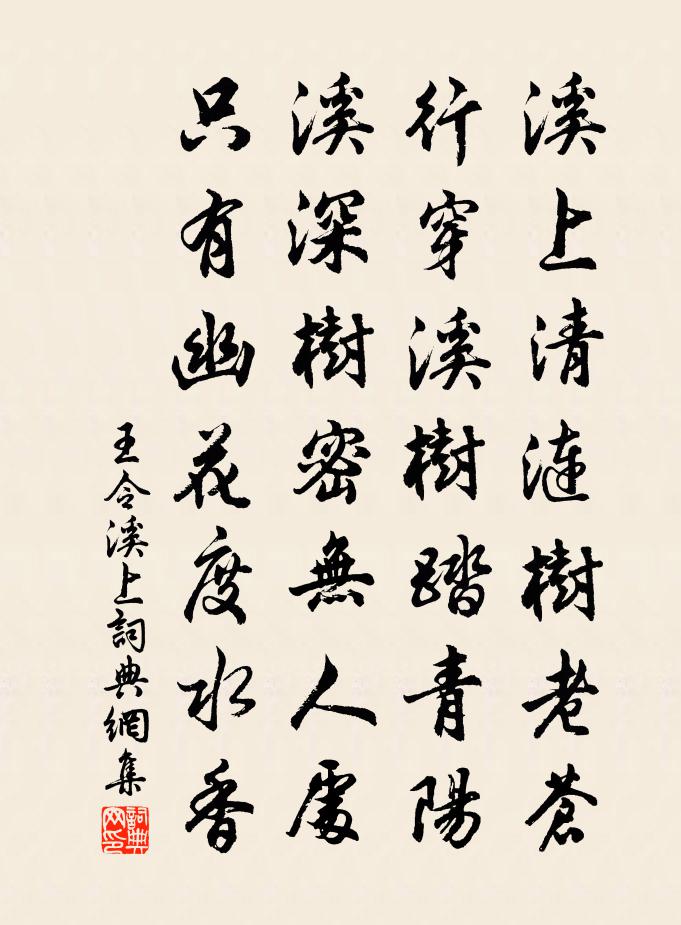 溪上清漣樹老蒼
行穿溪樹踏青陽
溪深樹密無人處
只有幽花度水香
王令溪上詞典網集
詞典網印